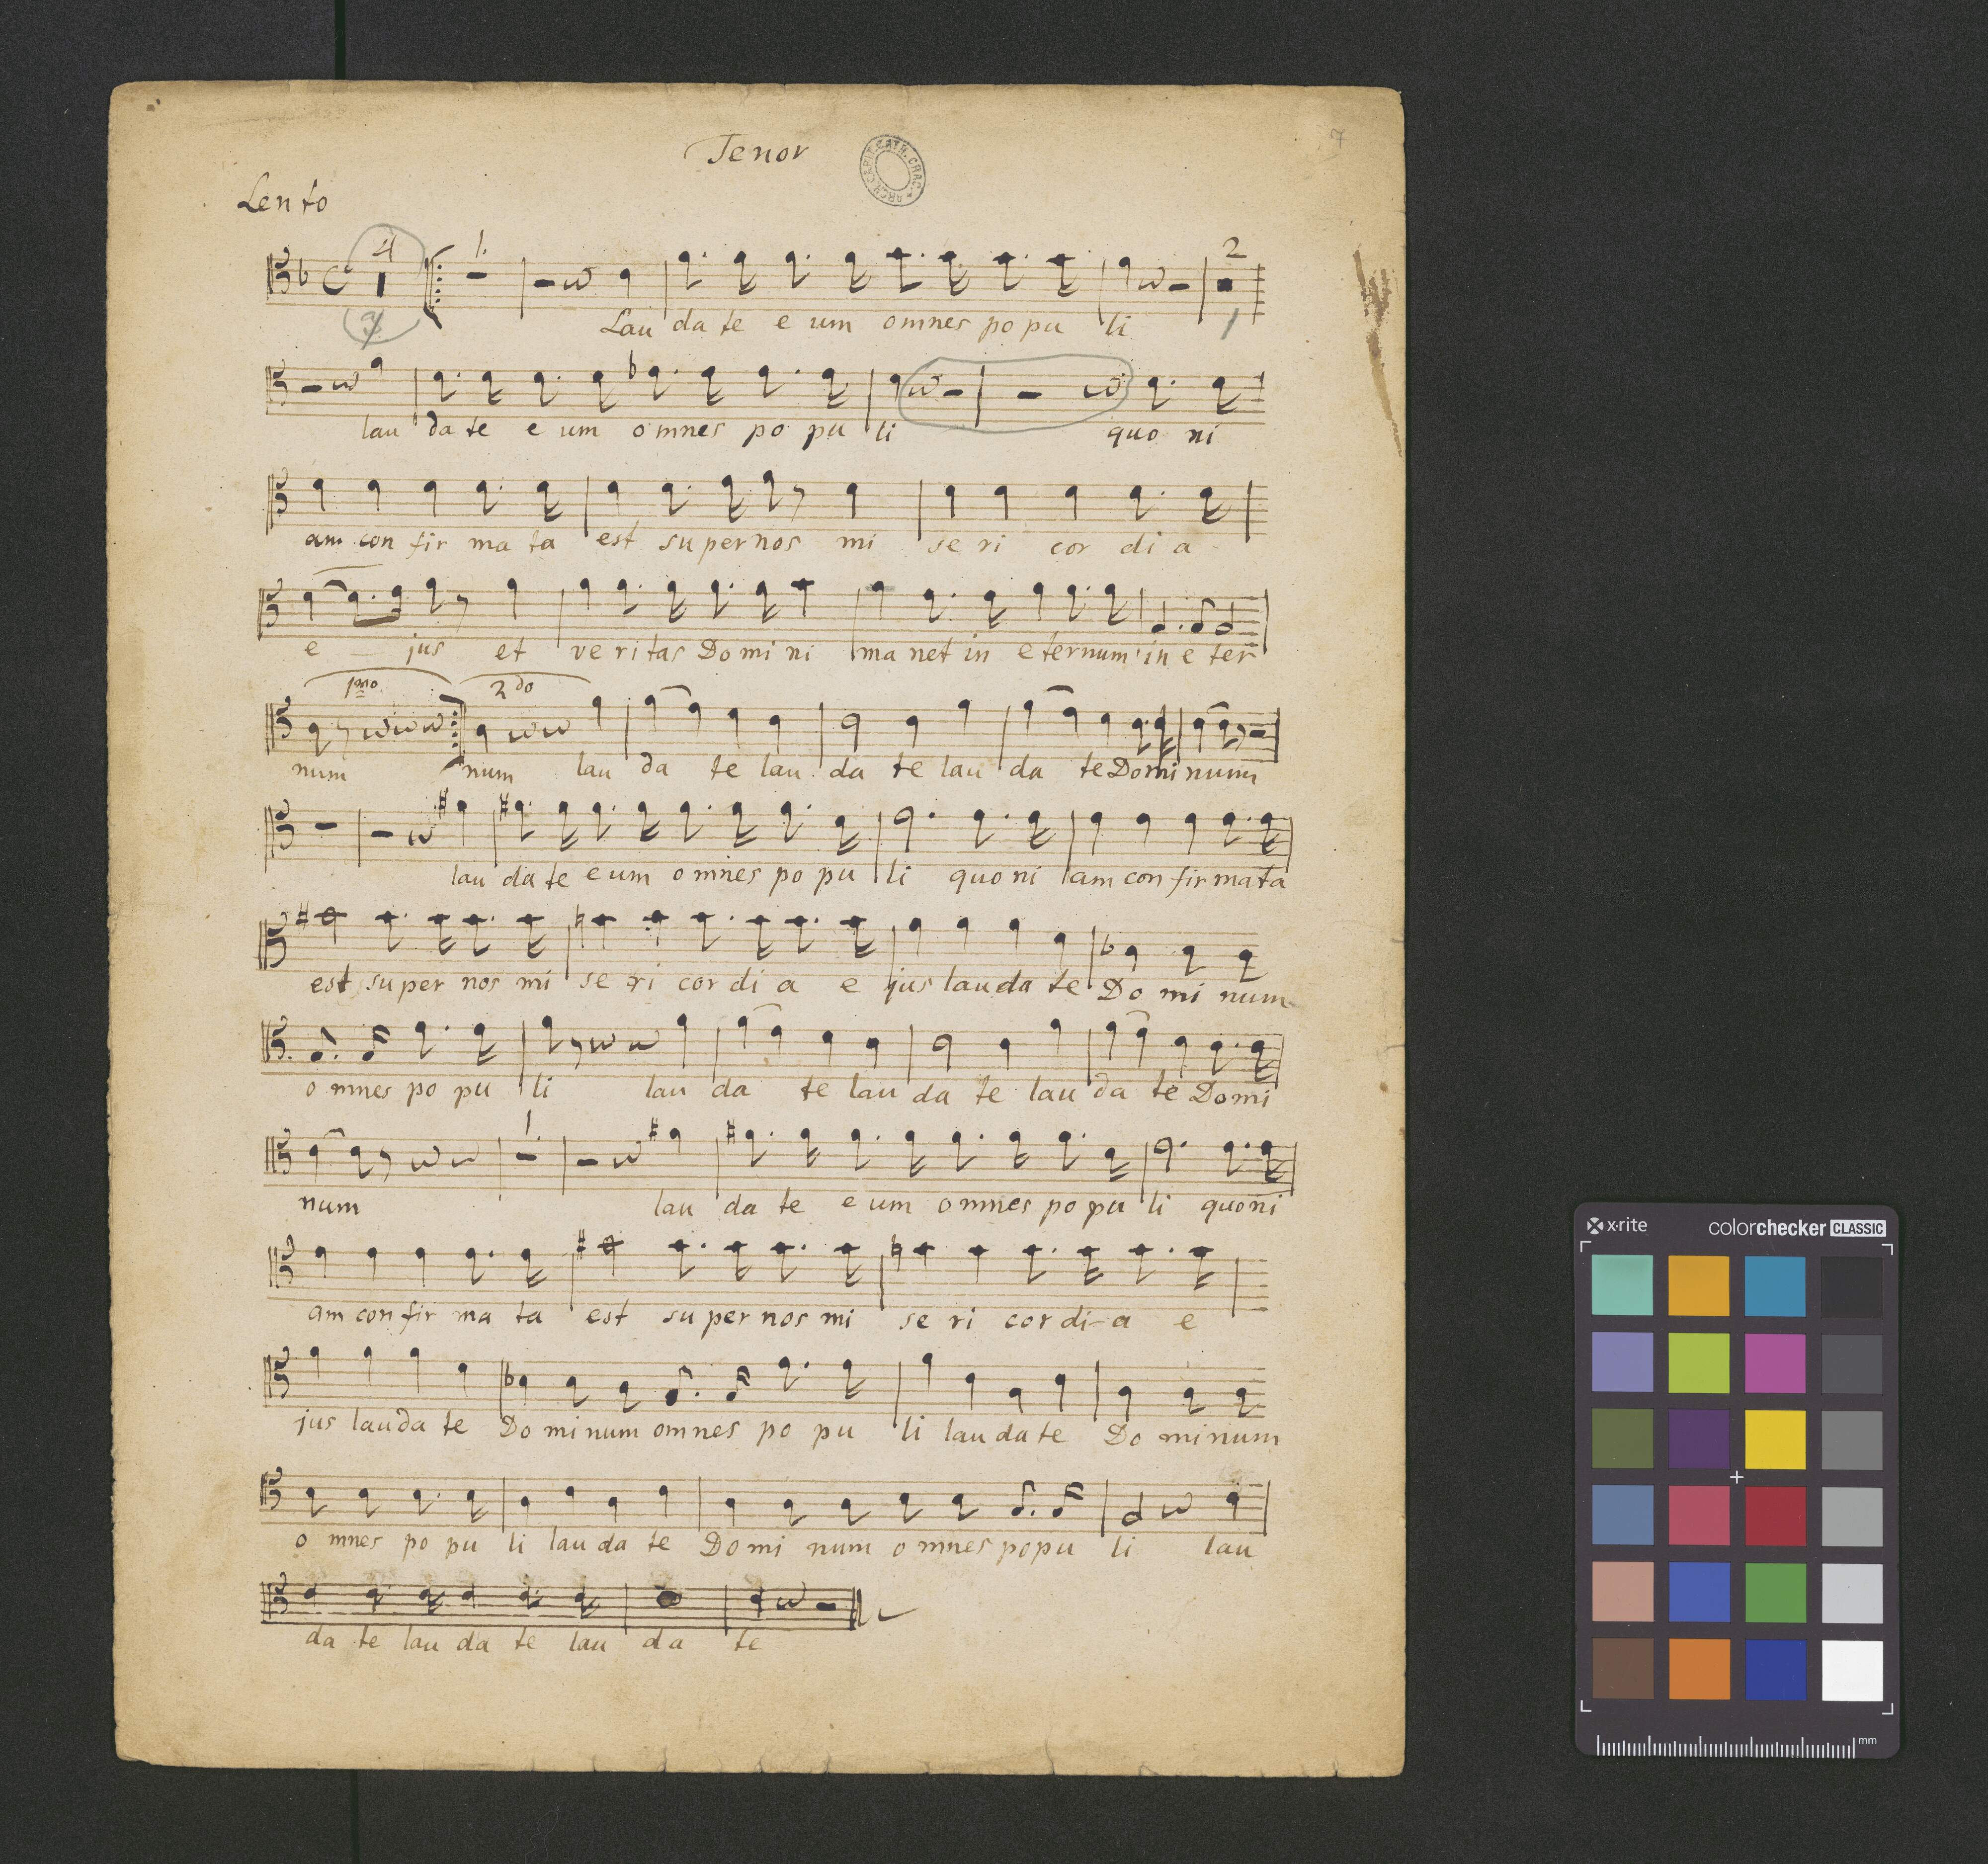 7
Tenor
ARCH. CAPIT. CATH. CRAC.
Lento
4 1. 2
Lau da te e um omnes po pu li 1
lau da te e um omnes po pu li quo ni
am con fir ma ta est su per nos mi se ri cor di a
e — jus et ve ri tas Do mi ni ma net in e ter num in e ter
1mo 2do
num num lau da te lau da te lau da te Do mi num
lau da te e um o mnes po pu li quo ni am con fir ma ta
est su per nos mi se ri cor di a e jus lau da te Do mi num
o mnes po pu li lau da te lau da te lau da te Do mi
1.
num lau da te e um o mnes po pu li quo ni
am con fir ma ta est su per nos mi se ri cor di a e
jus lau da te Do mi num om nes po pu li lau da te Do mi num
o mnes po pu li lau da te Do mi num o mnes po pu li lau
da te lau da te lau da te
x-rite colorchecker CLASSIC
mm